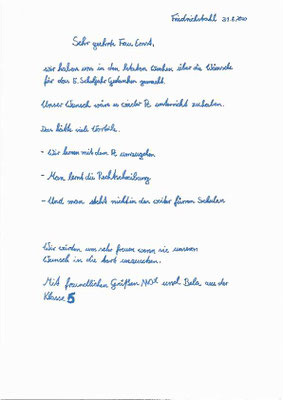 Friedrichstahl 31.8.2020
Sehr geehrte Frau
wir haben uns in den letzten Wochen über die Wünsche
für das 5. Schuljahr Gedanken gemacht.
Unser Wunsch wäre es wieder Pc unterricht zu haben.
Das hätte viele Vorteile.
- Wir lernen mit dem Pc umzugehen
- Man lernt die Rechtschreibung
- Und man steht nicht in den weiter fürenn Schulen
Wir würden uns sehr freuen wenn sie unseren
Wunsch in die
Mit freundlichen Grüßen Max und Bela aus der
Klasse 5